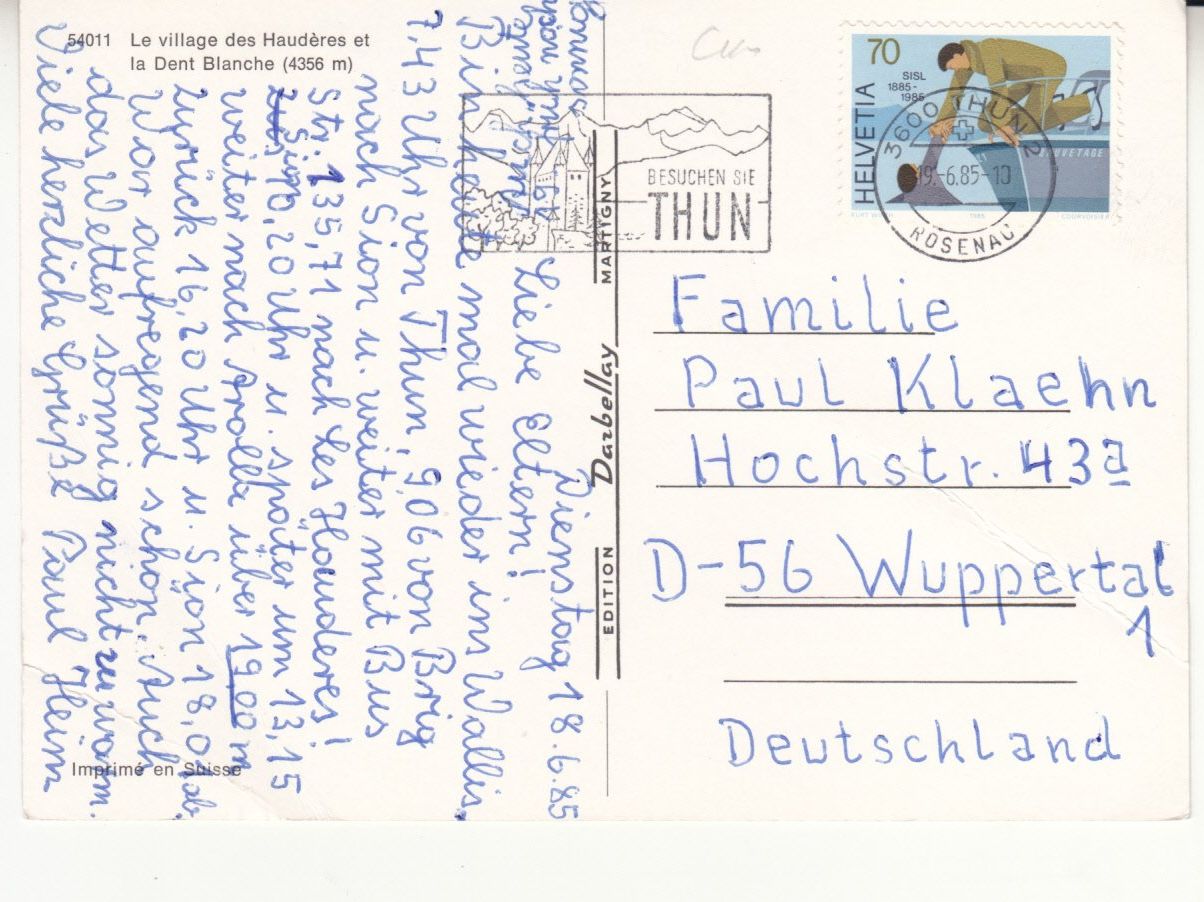 54011 Le village des Haudères et
la Dent Blanche (4356 m)
Dienstag 18.6.85
Liebe Eltern!
Bin heute mal wieder ins Wallis.
7,43 Uhr von Thun, 9,06 von Brig
nach Sion u. weiter mit Bus
Str. 135,71 nach Les Hauderes!
10,20 Uhr u. später um 13,15
weiter nach Arolla über 1900 m
zurück 16,20 Uhr u. Sion 18,01 ab.
War aufregend schön. Auch
das Wetter sonnig nicht zu warm.
Viele herzliche Grüße Paul Heim
Imprimé en Suisse
EDITION Darbellay MARTIGNY
BESUCHEN SIE
THUN
HELVETIA
70
SISL
1885-
1985
SAUVETAGE
KURT WIRTH 1985 COURVOISIER
3600 THUN 2
19.-6.85-10
ROSENAU
Familie
Paul Klaehn
Hochstr. 43a
D-56 Wuppertal
1
Deutschland